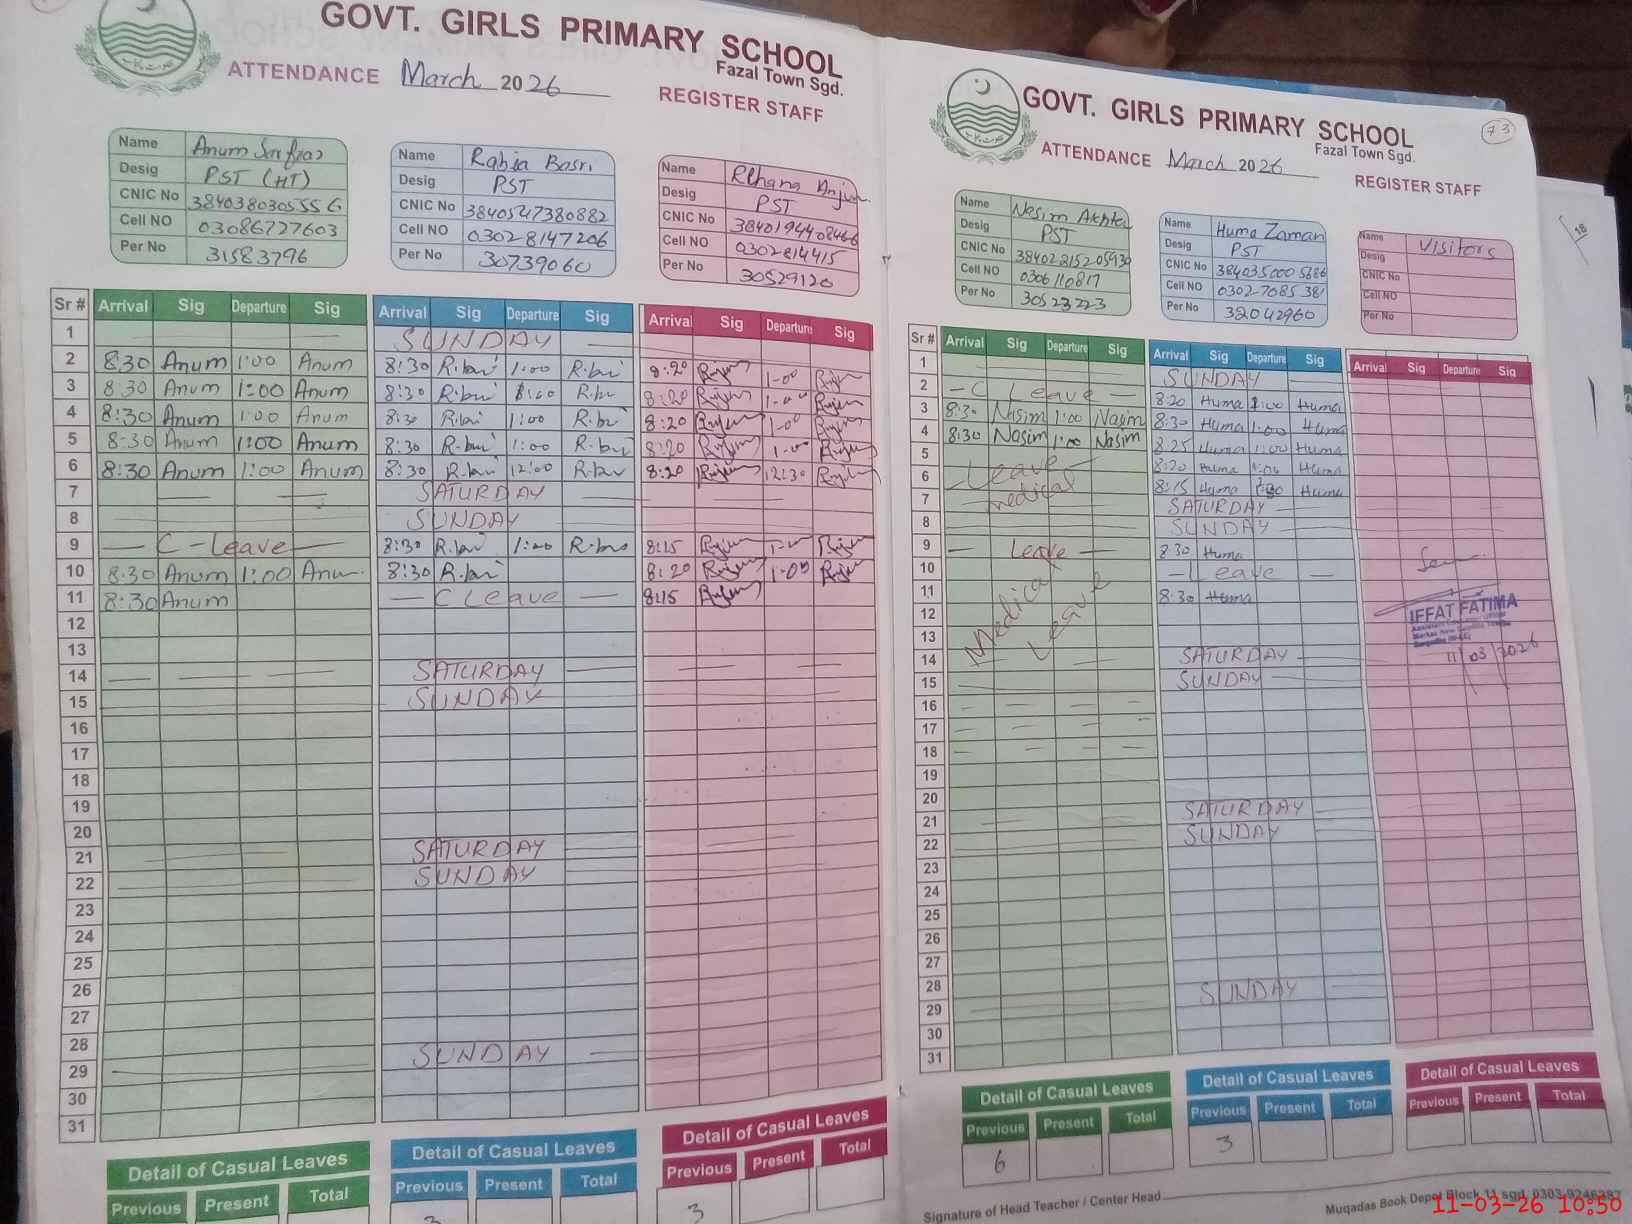 GOVT. GIRLS PRIMARY SCHOOL
Fazal Town Sgd.
ATTENDANCE March 2026
REGISTER STAFF
Name Anum Sarfraz
Desig PST (HT)
CNIC No 3840380305556
Cell NO 03086727603
Per No 31583796
Name Rabia Basri
Desig PST
CNIC No 3840547380882
Cell NO 03028147206
Per No 30739060
Name Rehana Anjum
Desig PST
CNIC No 3840194408466
Cell NO 0302814415
Per No 30529120
Sr # Arrival Sig Departure Sig Arrival Sig Departure Sig Arrival Sig Departure Sig
1 SUNDAY
2 8:30 Anum 1:00 Anum 8:30 1:00 8:20 1-00
3 8:30 Anum 1:00 Anum 8:30 1:00 8:20 1-00
4 8:30 Anum 1:00 Anum 8:30 1:00 8:20 1-00
5 8:30 Anum 1:00 Anum 8:30 1:00 8:20 1-00
6 8:30 Anum 1:00 Anum 8:30 12:00 8:20 12:30
7 SATURDAY
8 SUNDAY
9 C-Leave 8:30 1:00 8:15 1-00
10 8:30 Anum 1:00 Anum 8:30 8:20 1-00
11 8:30 Anum C Leave 8:15
12
13
14 SATURDAY
15 SUNDAY
16
17
18
19
20
21 SATURDAY
22 SUNDAY
23
24
25
26
27
28
29 SUNDAY
30
31
Detail of Casual Leaves
Previous Present Total
Detail of Casual Leaves
Previous Present Total
3
Detail of Casual Leaves
Previous Present Total
3
GOVT. GIRLS PRIMARY SCHOOL
73
Fazal Town Sgd.
ATTENDANCE March 2026
REGISTER STAFF
Name Nasim Akhtar
Desig PST
CNIC No
Cell NO 0306110817
Per No 30523223
Name Huma Zaman
Desig PST
CNIC No 3840350005686
Cell NO 03027085381
Per No 32042960
Name Visitors
Desig
CNIC No
Cell NO
Per No
Sr # Arrival Sig Departure Sig Arrival Sig Departure Sig Arrival Sig Departure Sig
1 SUNDAY
2 C Leave 8:20 Huma 1:00 Huma
3 8:30 Nasim 1:00 Nasim 8:30 Huma 1:00 Huma
4 8:30 Nasim 1:00 Nasim 8:25 Huma 1:00 Huma
5 Leave 8:20 Huma 1:00 Huma
6 medical 8:15 Huma Huma
7 SATURDAY
8 SUNDAY
9 Leave 8:30 Huma
10 Medical Leave Leave
11 8:30 Huma
IFFAT FATIMA
11/03/2026
12
13
14 SATURDAY
15 SUNDAY
16
17
18
19
20
21 SATURDAY
22 SUNDAY
23
24
25
26
27
28
29 SUNDAY
30
31
Detail of Casual Leaves
Previous Present Total
6
Detail of Casual Leaves
Previous Present Total
3
Detail of Casual Leaves
Previous Present Total
Signature of Head Teacher / Center Head
Muqadas Book Depot Block 11 sgd. 0303-9246287
11-03-26 10:50